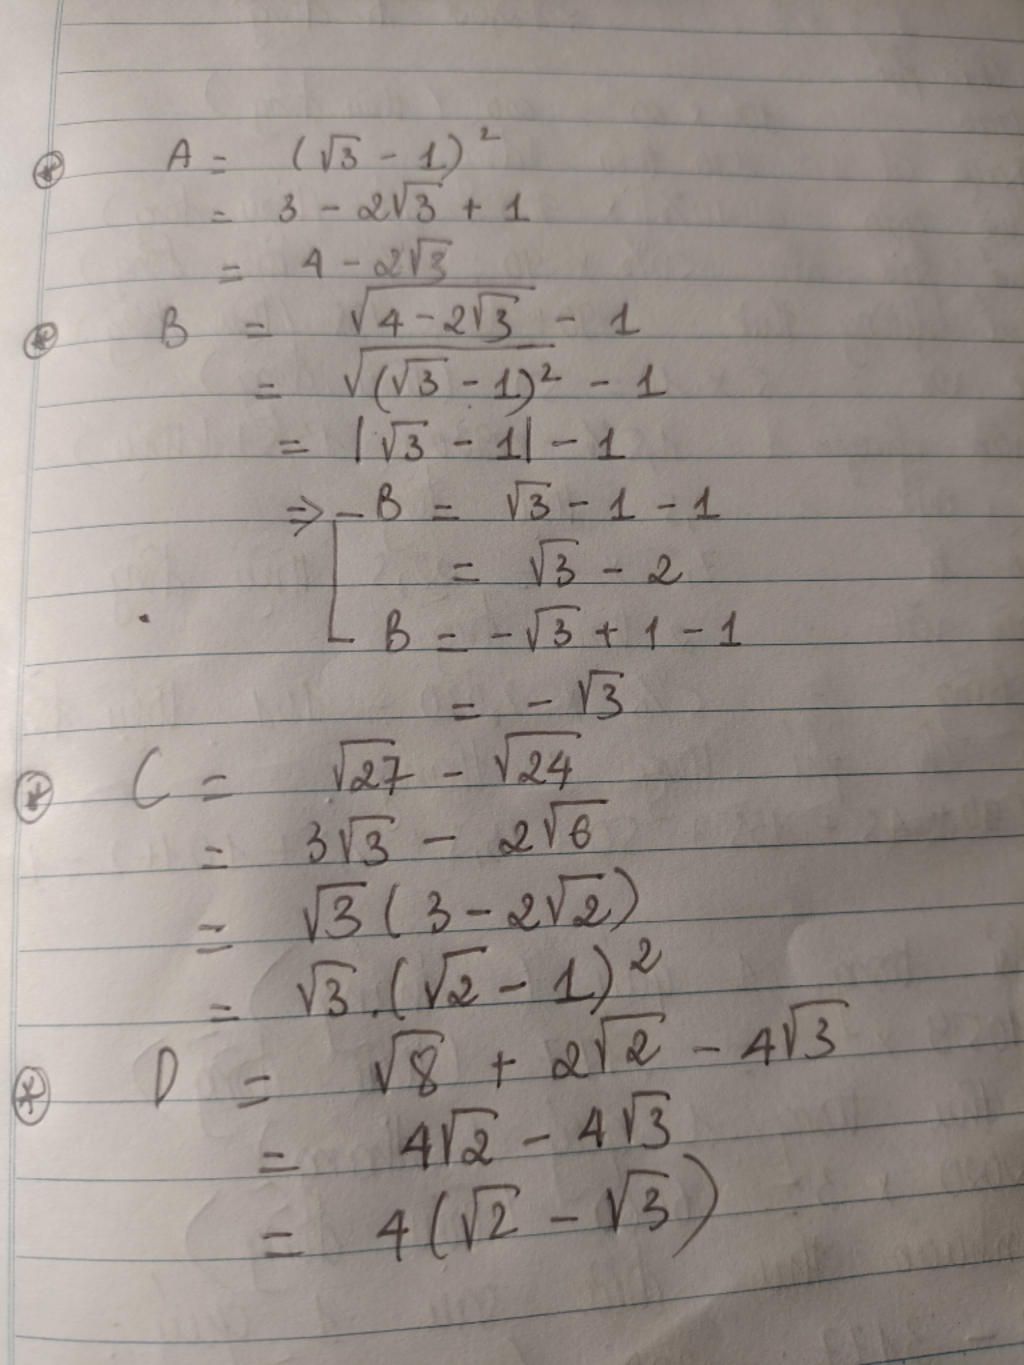 ⊛ A = (√3 - 1)²
= 3 - 2√3 + 1
= 4 - 2√3
⊛ B = √(4 - 2√3) - 1
= √((√3 - 1)²) - 1
= |√3 - 1| - 1
⇒ B = √3 - 1 - 1
= √3 - 2
B = -√3 + 1 - 1
= - √3
⊛ C = √27 - √24
= 3√3 - 2√6
= √3 (3 - 2√2)
= √3 . (√2 - 1)²
⊛ D = √8 + 2√2 - 4√3
= 4√2 - 4√3
= 4(√2 - √3)